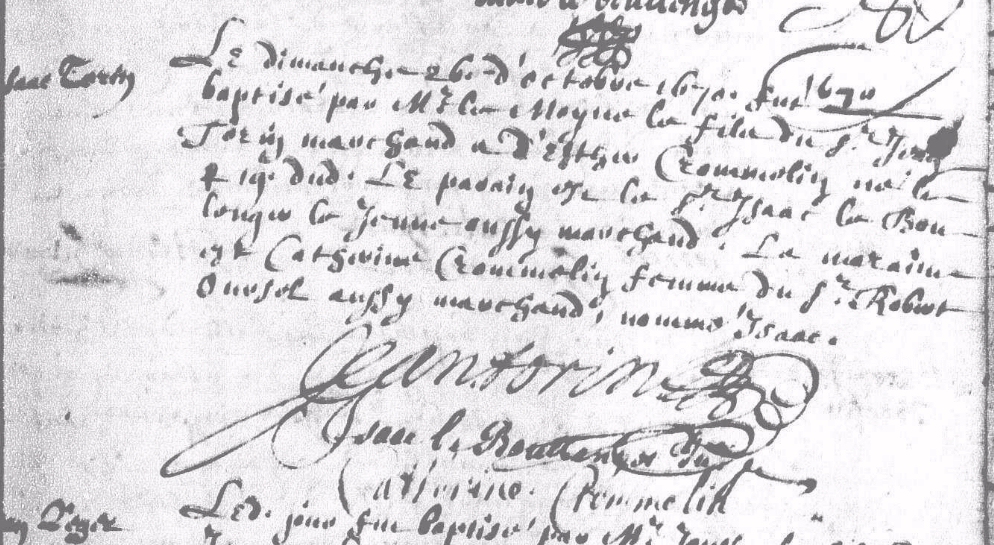 Isaac Torin
Le dimanche 26e d'octobre 1670. fut 1670
baptisé par Mr. le Moyne le fils du Sr. Jean
Torin marchand et d'Esther Crommelin né le
dud. Le parain est le Sr. Isaac le Bou
lenger le Jeune aussy marchand. La maraine
est Catherine Crommelin femme du Sr. Robert
Oursel aussy marchand, nommé Isaac.
Jean Torin
Isaac le Boullenger
Catherine Crommelin
Leger
Led. jour fut baptisé par Mr.